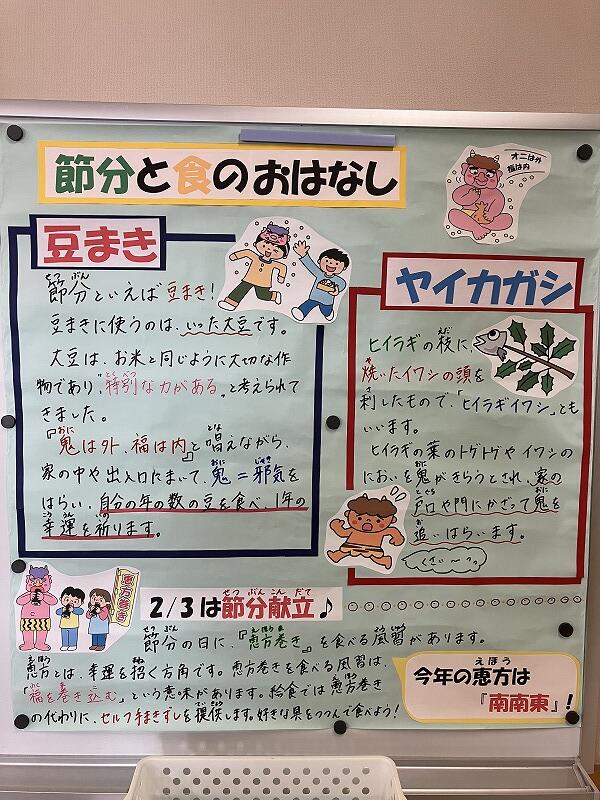 節分と食のおはなし
オニは外
福は内
豆まき
節分といえば豆まき!
豆まきに使うのは、いった大豆です。
大豆は、お米と同じように大切な作
物であり、"特別な力がある"と考えられて
きました。
『鬼は外、福は内』と唱えながら、
家の中や出入口にまいて、鬼=邪気を
はらい、自分の年の数の豆を食べ、1年の
幸運を祈ります。
ヤイカガシ
ヒイラギの枝に、
焼いたイワシの頭を
刺したもので、「ヒイラギイワシ」とも
いいます。
ヒイラギの葉のトゲトゲやイワシの
においを鬼がきらうとされ、家の
戸口や門にかざって鬼を
追いはらいます。
くさい〜
恵方巻き
2/3は節分献立♪
節分の日に、『恵方巻き』を食べる風習があります。
恵方とは、幸運を招く方角です。恵方巻きを食べる風習は、
「福を巻き込む」という意味があります。給食では恵方巻き
の代わりに、セルフ手まきずしを提供します。好きな具をつつんで食べよう!
今年の恵方は
『南南東』!